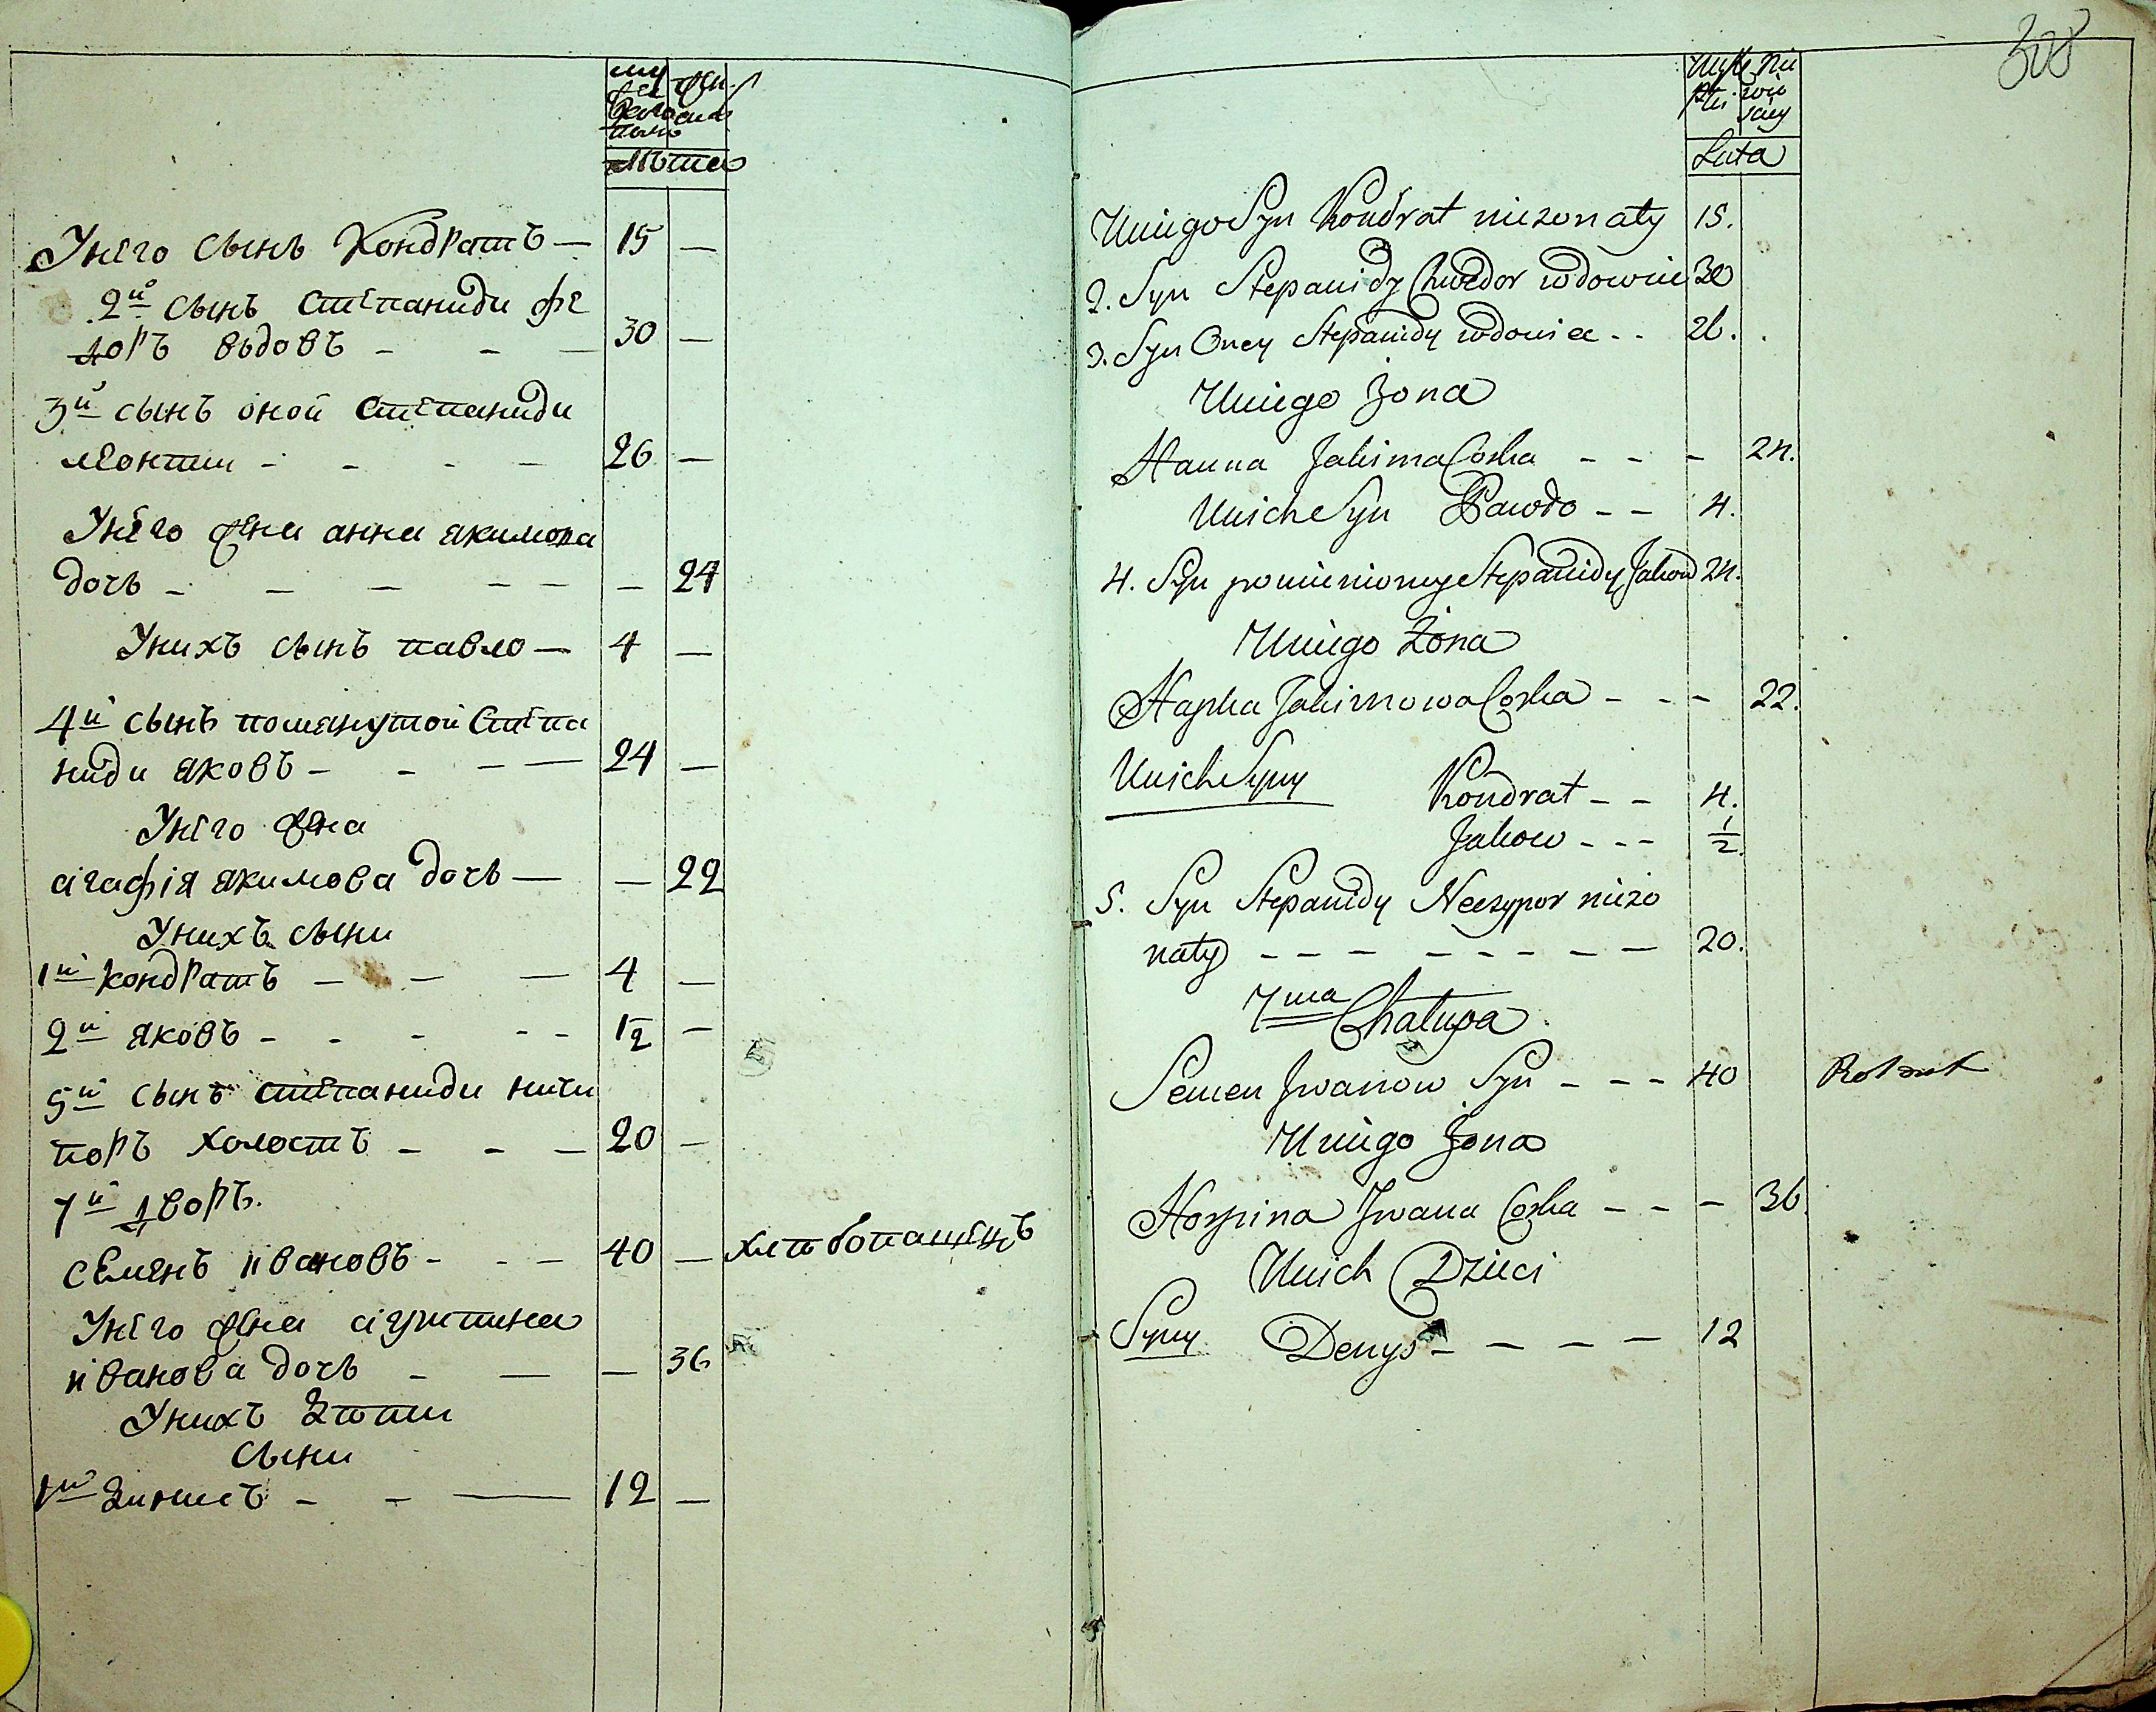 му
жеска
женска
Лѣта
Унего сынъ Кондратъ — 15 —
2й сынъ Степаниди Фе
доръ вдовъ - - — 30 —
3й сынъ оной Степаниди
Леонтии - - - — 26 —
Унего жена анна якимова
дочь - — — - — — 24
Унихъ сынъ павло — 4 —
4й сынъ помянутой Степа
ниди яковъ - - - — 24 —
Унего жена
агафія якимова дочь — — 22
Унихъ сыни
1й кондратъ — — — 4 —
2й яковъ - - - - - 1/2 —
5й сынъ Степаниди ничи
поръ холостъ - - — 20 —
7й дворъ.
семенъ ивановъ - - — 40 — хлѣбопашецъ
Унего жена агрипина
иванова дочь - — — 36
Унихъ дѣти
сыни
1й динисъ - - — 12 —
308
Męs Nie
ski wie
sciey
Lata
Uniego Syn Kondrat niezonaty 15.
2. Syn Stepanidy Chwedor wdowiec 30
3. Syn Oney Stepanidy wdowiec - - 26.
Uniego Zona
Hanna Jakima Corka - - - 24.
Unich Syn Pawło - - 4.
4. Syn pomienioney Stepanidy Jakow 24.
Uniego Żona
Hapka Jakimowa Corka - - - 22.
Unich Syny Kondrat - - 4.
Jakow - - - 1/2.
5. Syn Stepanidy Neczypor niezo
naty - - - - - - - - 20.
7ma Chałupa.
Semen Jwanow Syn - - - 40
Uniego Zona
Horpina Jwana Corka - - - 36.
Unich Dzieci
Syny Denys - - - - 12